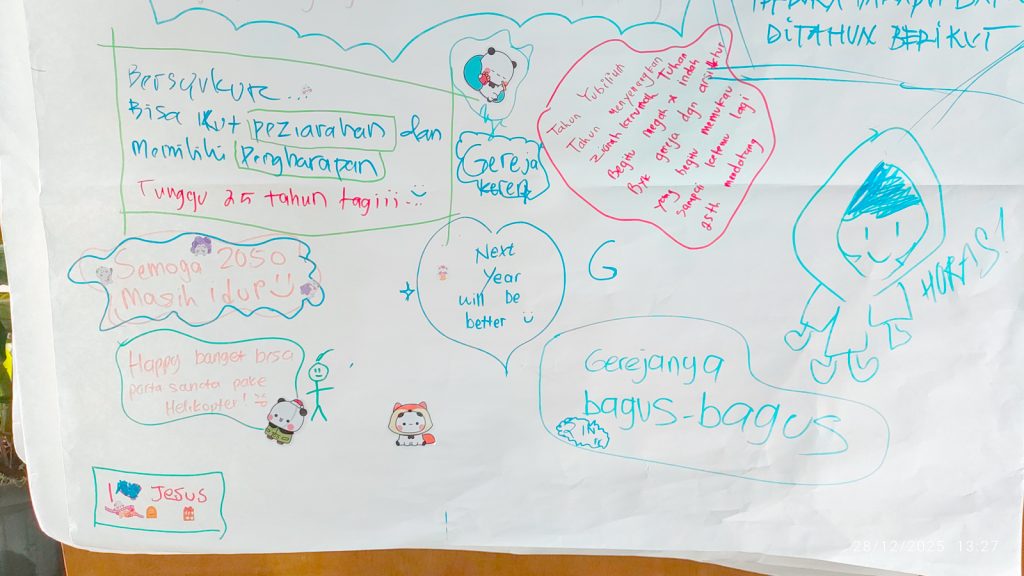 DITAHUN BERIKUT
Bersyukur...
Bisa ikut peziarahan dan
Memiliki Pengharapan
Tunggu 25 tahun lagiii
Gereja
keren
Tahun Yubilium
Tahun menyenangkan
ziarah Tuhan
Begitu indah
Byk gereja dgn arsitktur
yang begitu memukau
sampai ketemu lagi
25 th mendatang
Semoga 2050
Masih idup
Next
Year
will be
better
G
HORAS!
Happy banget bisa
porta sancta pake
Helikopter!
Gerejanya
bagus-bagus
I Jesus
28/12/2025 13:27